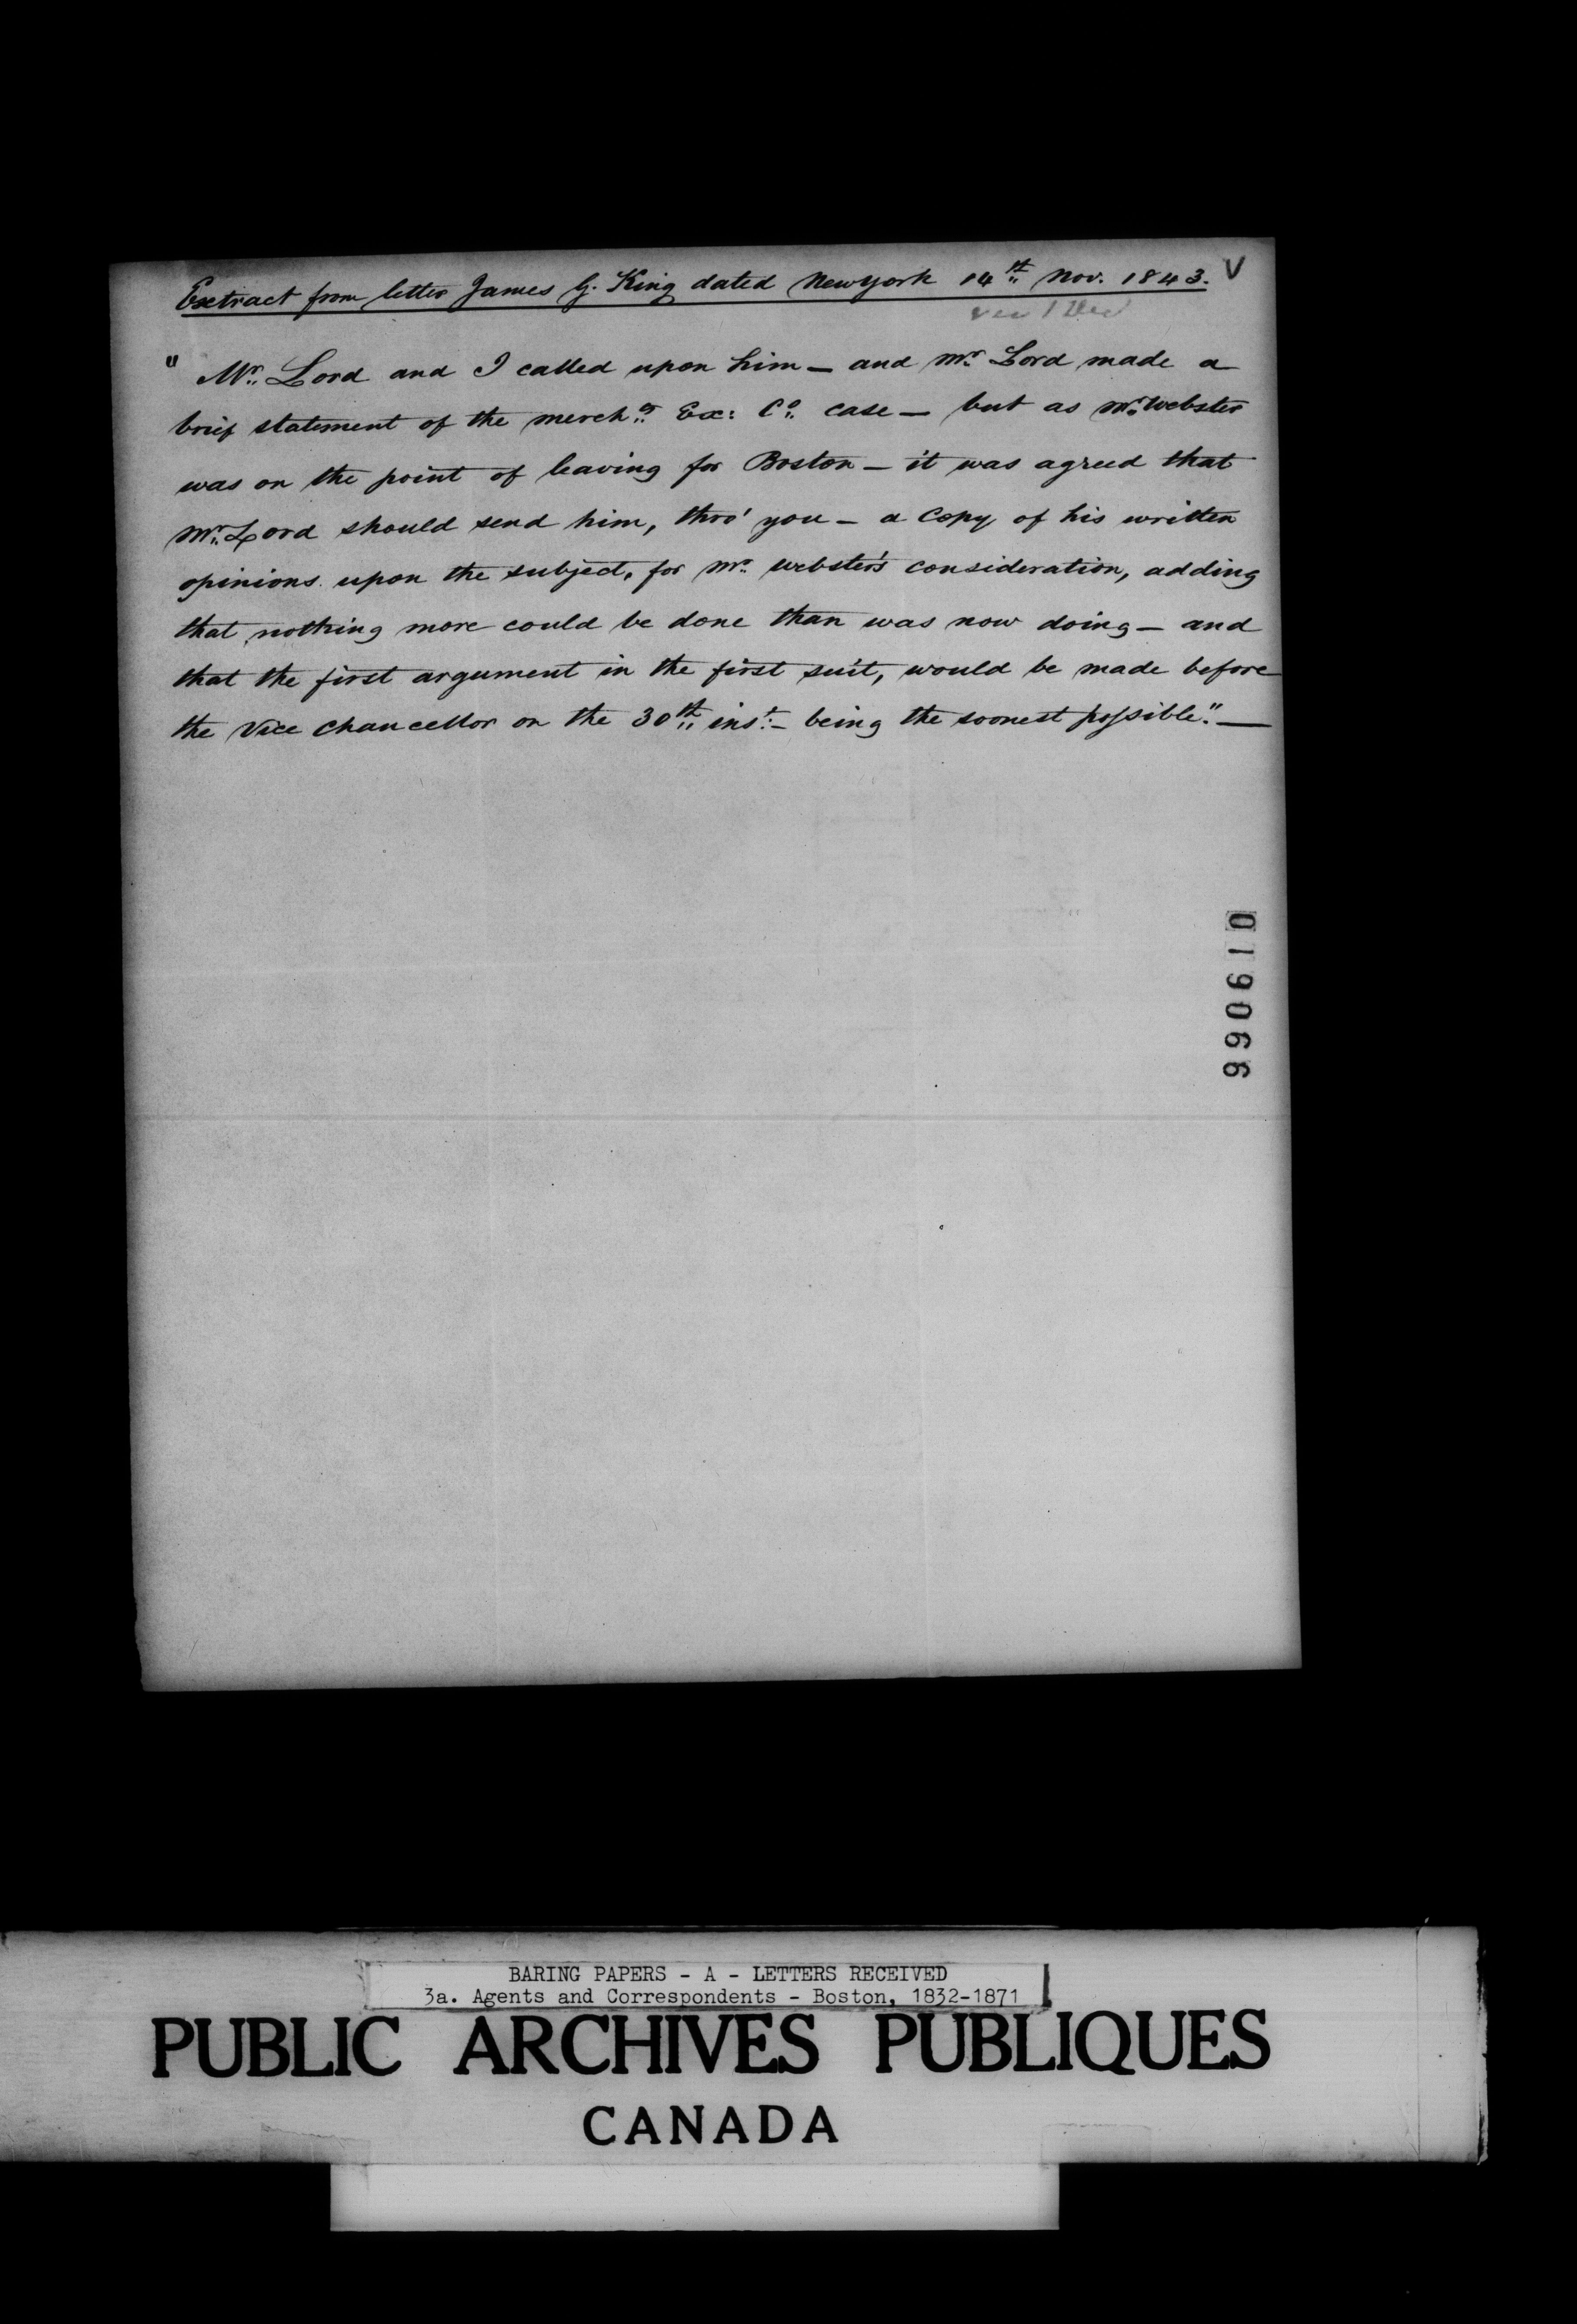 Extract from letter James G. King dated New York 14th Nov. 1843. V
" Mr. Lord and I called upon him — and Mr. Lord made a
brief statement of the merchts. Ex: Co. case — but as Mr. Webster
was on the point of leaving for Boston — it was agreed that
Mr. Lord should send him, thro' you — a Copy of his written
opinions upon the subject, for Mr. Webster's consideration, adding
that nothing more could be done than was now doing — and
that the first argument in the first suit, would be made before
the Vice Chancellor on the 30th inst. — being the soonest possible." —
019066
BARING PAPERS - A - LETTERS RECEIVED
3a. Agents and Correspondents - Boston, 1832-1871
PUBLIC ARCHIVES PUBLIQUES
CANADA